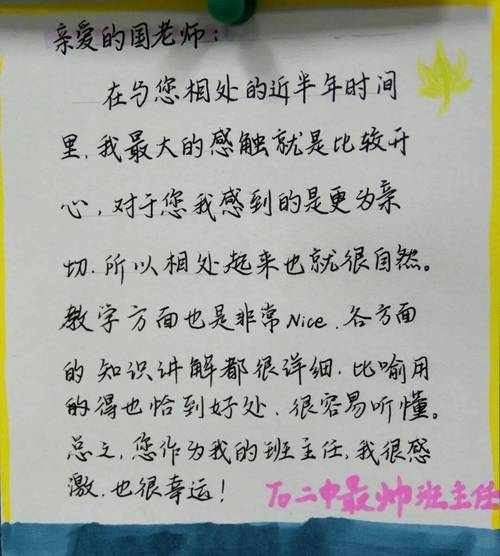 亲爱的国老师：
在与您相处的近半年时间
里，我最大的感触就是比较开
心，对于您我感到的是更为亲
切，所以相处起来也就很自然。
教学方面也是非常Nice，各方面
的知识讲解都很详细，比喻用
的得也恰到好处，很容易听懂。
总之，您作为我的班主任，我很感
激，也很幸运！
To 二中最帅班主任